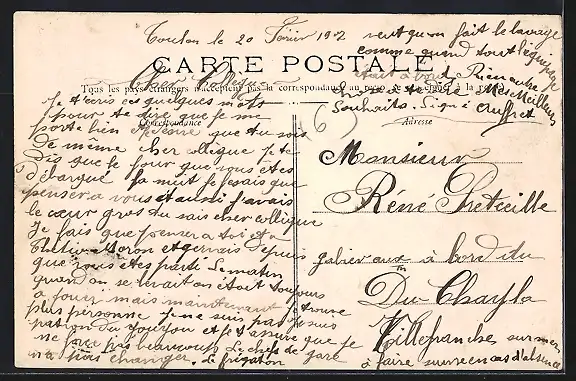 Toulon le 20 Février 1912
CARTE POSTALE
Tous les pays étrangers n'acceptent pas la correspondance au recto, se renseigner à la poste
Correspondance
Adresse
Cher Collègue
Je t'écris ces quelques mots
pour te dire que je me
porte bien que tu sois
de même cher collègue je te
dis que le jour que vous êtes
débarqué la nuit je fesais que
penser a vous et aussi j'avais
le cœur gros tu sais cher collègue
Je fais que penser a toi et a
et gervais depuis
que vous êtes parti Le matin
quand on se levait on était toujours
a jouer mais maintenant je trouve
plus personne Je ne suis pas
patron du fourgon et je t'assure que je
ne fais pas beaucoup Le chefs de gare
n'a pas changer. Le frigaton
veut qu'on fait le lavage
comme quand tout l'équipage
était à bord Rien autre
chose a te dire Mes Meilleurs
Souhaits. Signé
6
Monsieur
Réné Preteceille
gabier aux à bord du
Du Chayla
Villefranche sur mer
à faire suivre en cas d'absence